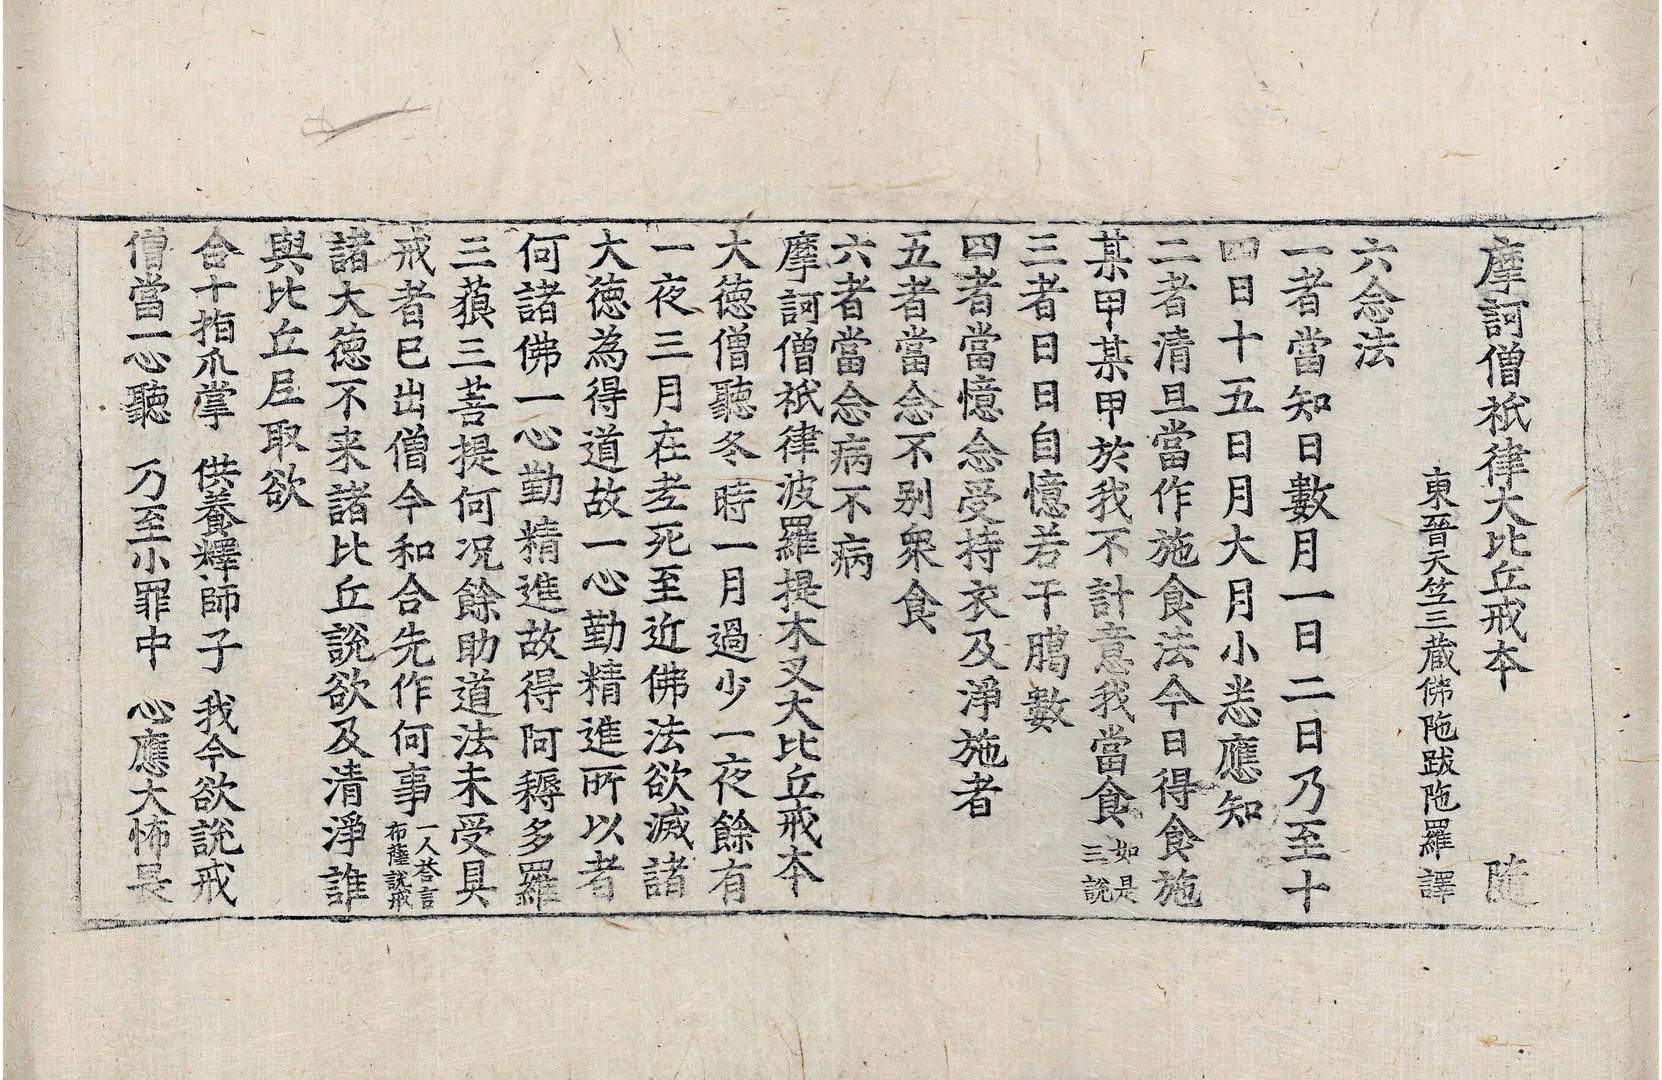 摩訶僧祇律大比丘戒本 隨
東晉天竺三藏佛陁跋陁羅譯
六念法
一者當知日數月一日二日乃至十
四日十五日月大月小悉應知
二者清旦當作施食法今日得食施
某甲某甲於我不計意我當食如是三說
三者日日自憶若干臈數
四者當憶念受持衣及淨施者
五者當念不別衆食
六者當念病不病
摩訶僧祇律波羅提木叉大比丘戒本
大德僧聽冬時一月過少一夜餘有
一夜三月在老死至近佛法欲滅諸
大德為得道故一心勤精進所以者
何諸佛一心勤精進故得阿耨多羅
三藐三菩提何況餘助道法未受具
戒者已出僧今和合先作何事一人荅言布薩說戒
諸大德不来諸比丘說欲及清淨誰
與比丘尼取欲
合十指爪掌 供養釋師子 我今欲說戒
僧當一心聽 乃至小罪中 心應大怖畏